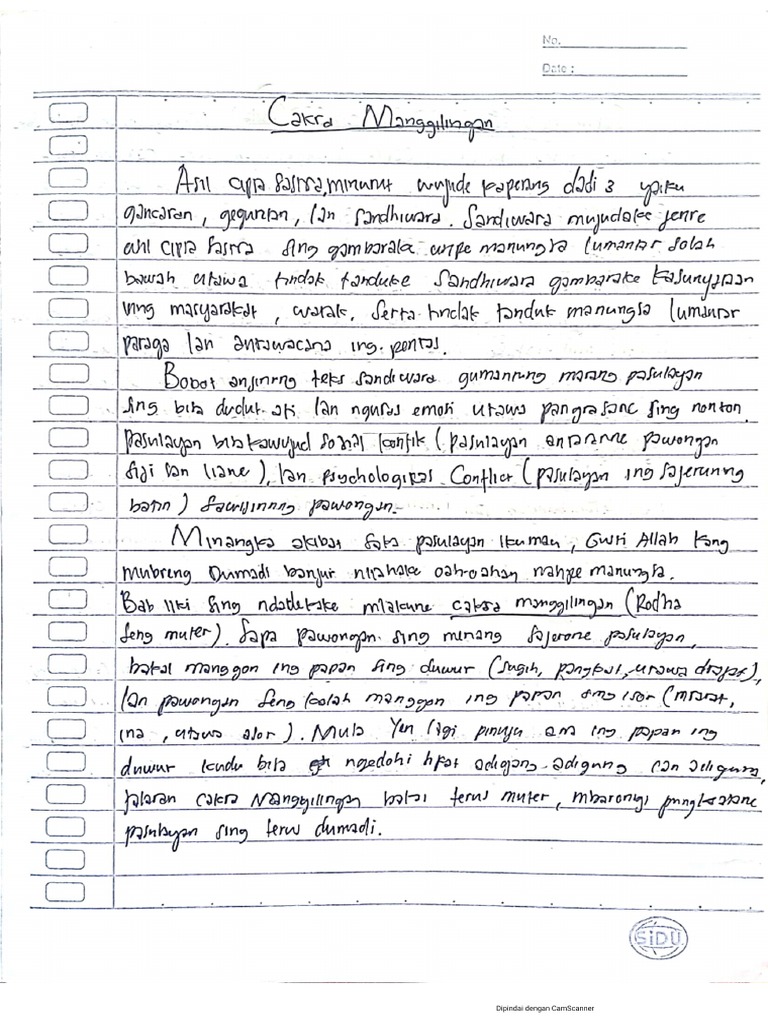 No.
Date :
Cakra Manggilingan
Asil cipta sastra, minurut wujude kaperang dadi 3 yaiku
gancaran, geguritan, lan sandhiwara. Sandiwara mujudake jenre
asil cipta sastra sing gambarake uripe manungsa lumantar solah
bawah utawa tindak tanduke Sandhiwara gambarake kasunyataan
ing masyarakat, watak, serta tindak tanduk manungsa lumantar
paraga lan antawacana ing pentas.
Bobot ansinrng teks sandiwara gumantung marang pasulayan
sing bisa dudut ati lan ngusas emosi utawa pangrasane sing nonton.
pasulayan bisa kawujud sosial konfik (pasulayan antaranne pawongan
siji lan liane), lan psychologikal Conflict (pasulayan ing sajerunng
batin) sawijinnng pawongan.
Minangka akibat saka pasulayan ikumau, Gusti Allah kang
mubreng Dumadi banjur nitahake oah-oahan nahpe manungsa.
Bab iki sing ndadekake mlakune cakra manggilingan (Rodha
seng muter). Sapa pawongan sing menang sajerone pasulayan,
bakal manggon ing papan sing duwur (sugih, pangkat, utawa drajat),
lan pawongan seng kalah manggon ing papan sing isor (mlarat,
ina, utawa asor). Mula yen ligi pinuju ana ing papan ing
duwur kudu bisa ngedohi sipat adigang-adigung lan adiguna,
jalaran cakra Manggilingan bakal terus muter, mbarengi pungkasane
pasulayan sing terus dumadi.
SIDU
Dipindai dengan CamScanner